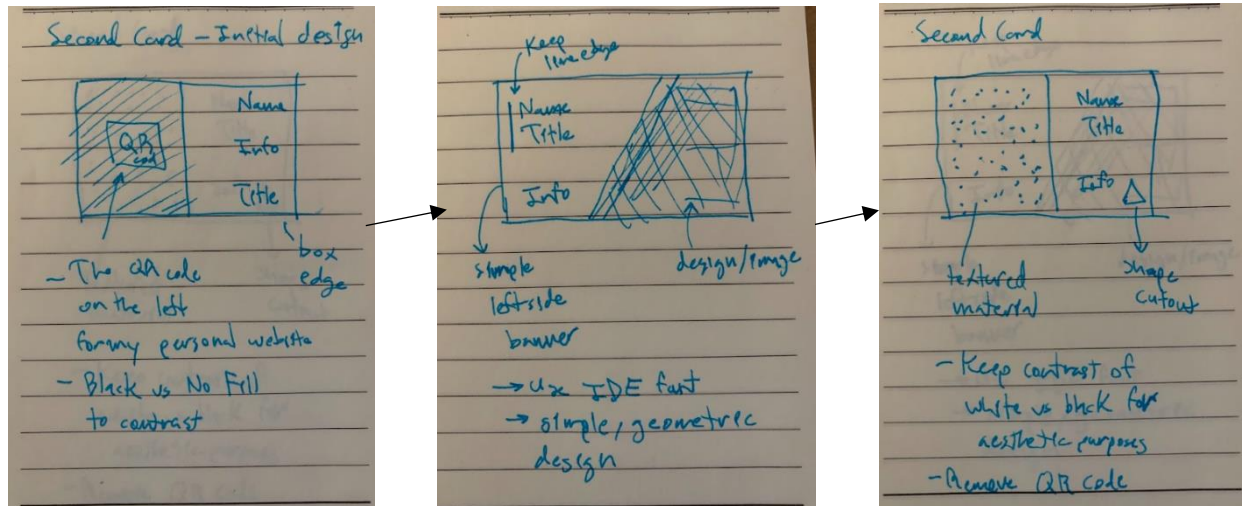 Second Card – Initial design
Name
QR
cod
Info
Title
box
edge
– The QR code
on the left
for my personal website
– Black vs No Fill
to contrast
Keep
line edge
Name
Title
Info
simple
leftside
banner
design/image
→ IDE font
→ simple, geometric
design
Second Card
Name
Title
Info
textured
material
shape
cutout
– Keep contrast of
white vs black for
aesthetic purposes
– Remove QR code